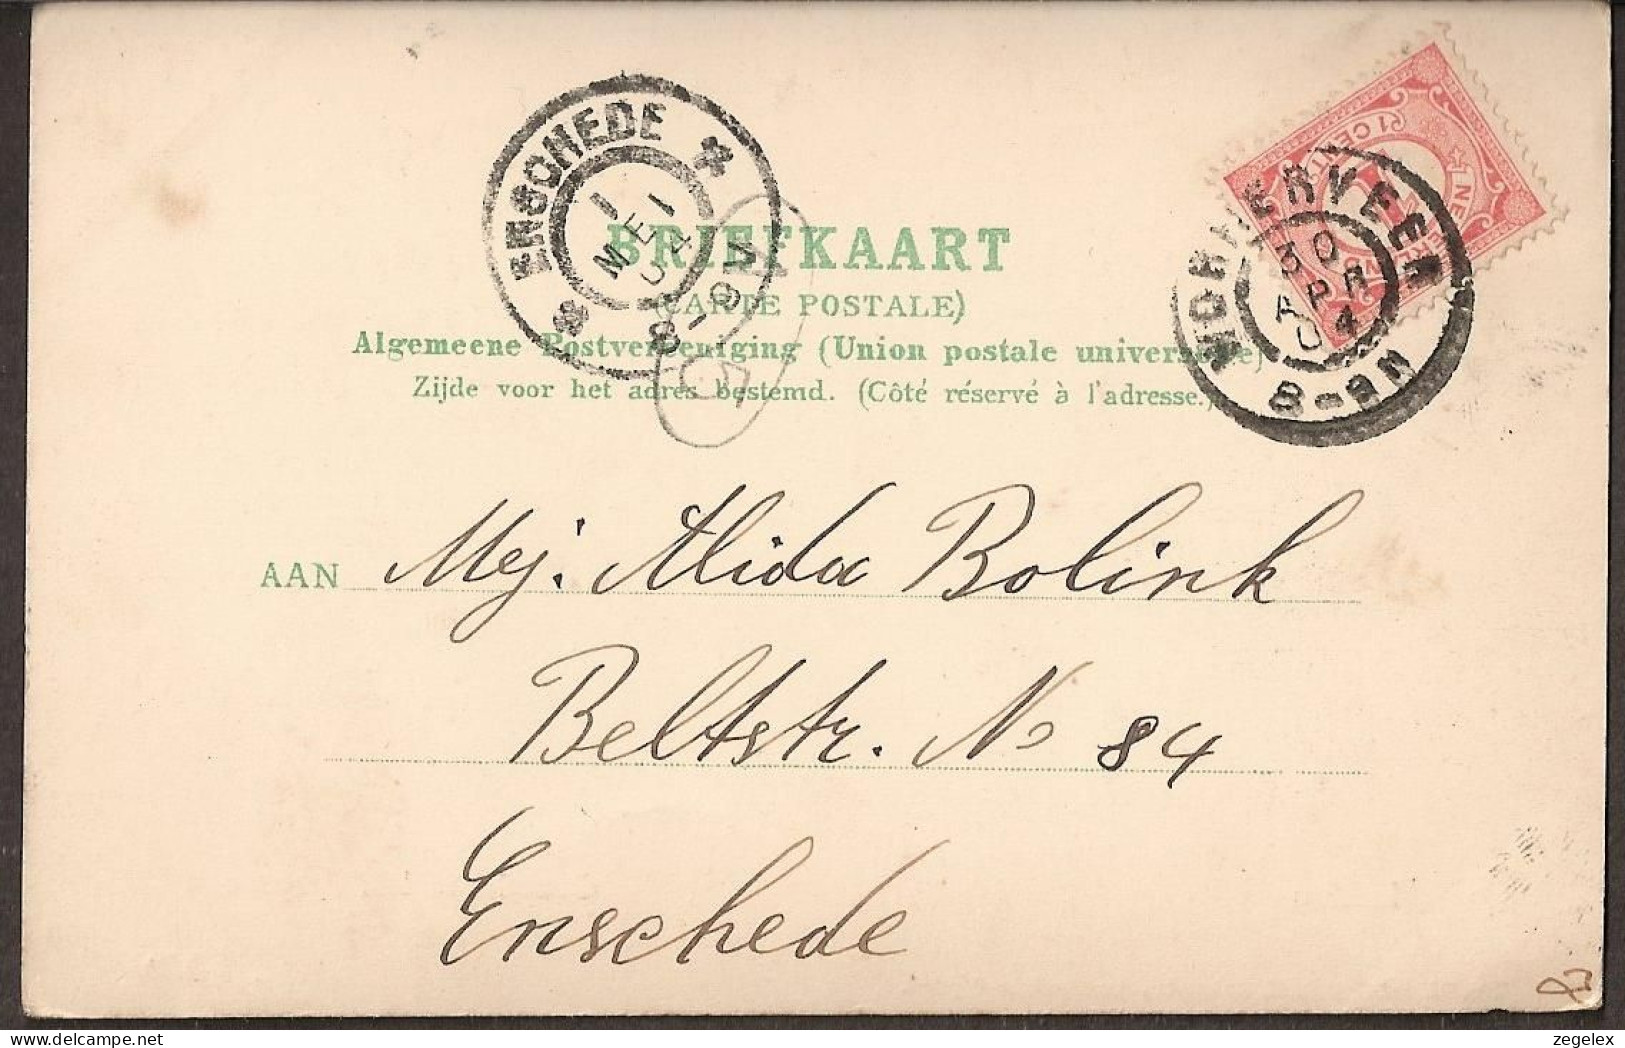 ENSCHEDE
1 MEI 04
8-9V
5
1 CENT
NE
WORMERVEER
30 APR 04
8-9N
BRIEFKAART
(CARTE POSTALE)
Algemeene Postvereeniging (Union postale universelle)
Zijde voor het adres bestemd. (Côté réservé à l'adresse.)
AAN Mej. Alida Bolink
Beltstr. No 84
Enschede
zegelex